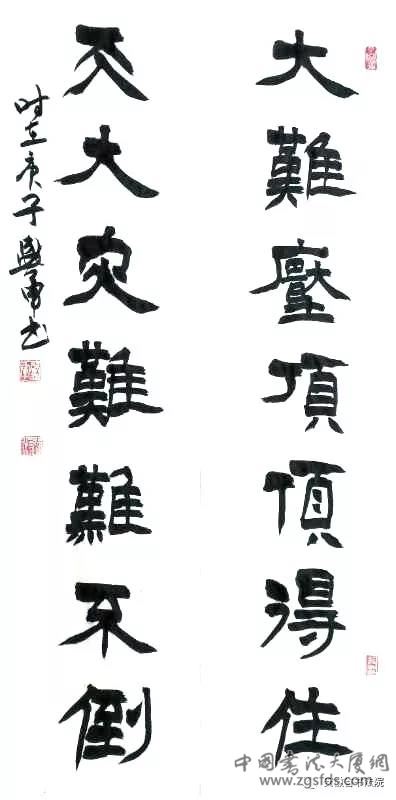 大難壓頂頂得住
天大災難難不倒
时在庚子
勇书
中國書法大厦網
www.zgsfds.com